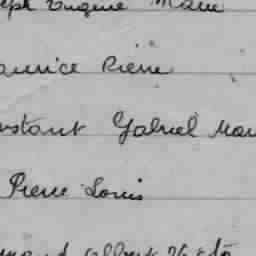 eph Eugene Marie
aurice Pierre
nstant Gabriel Mar
Pierre Louis